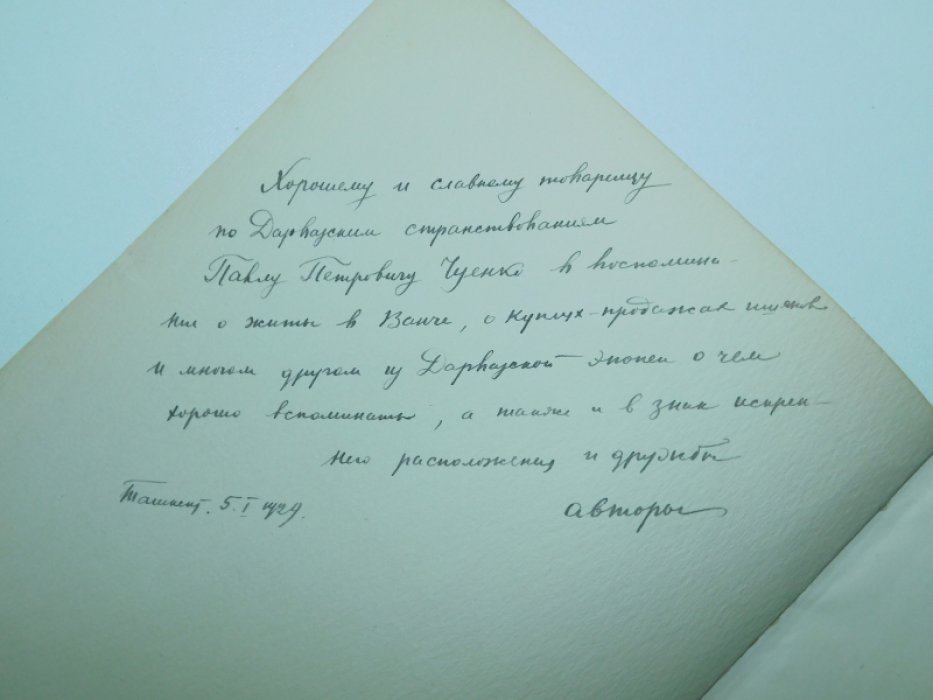 Хорошему и славному товарищу
по Дарвазским странствованиям
Павлу Петровичу Чуенко в воспомина-
нии о житье в Ванче, о куплях-продажах
и многом другом из Дарвазской эпопеи о чем
хорошо вспоминать, а также и в знак искрен-
него расположения и дружбы
авторы
Ташкент. 5.I 1929.